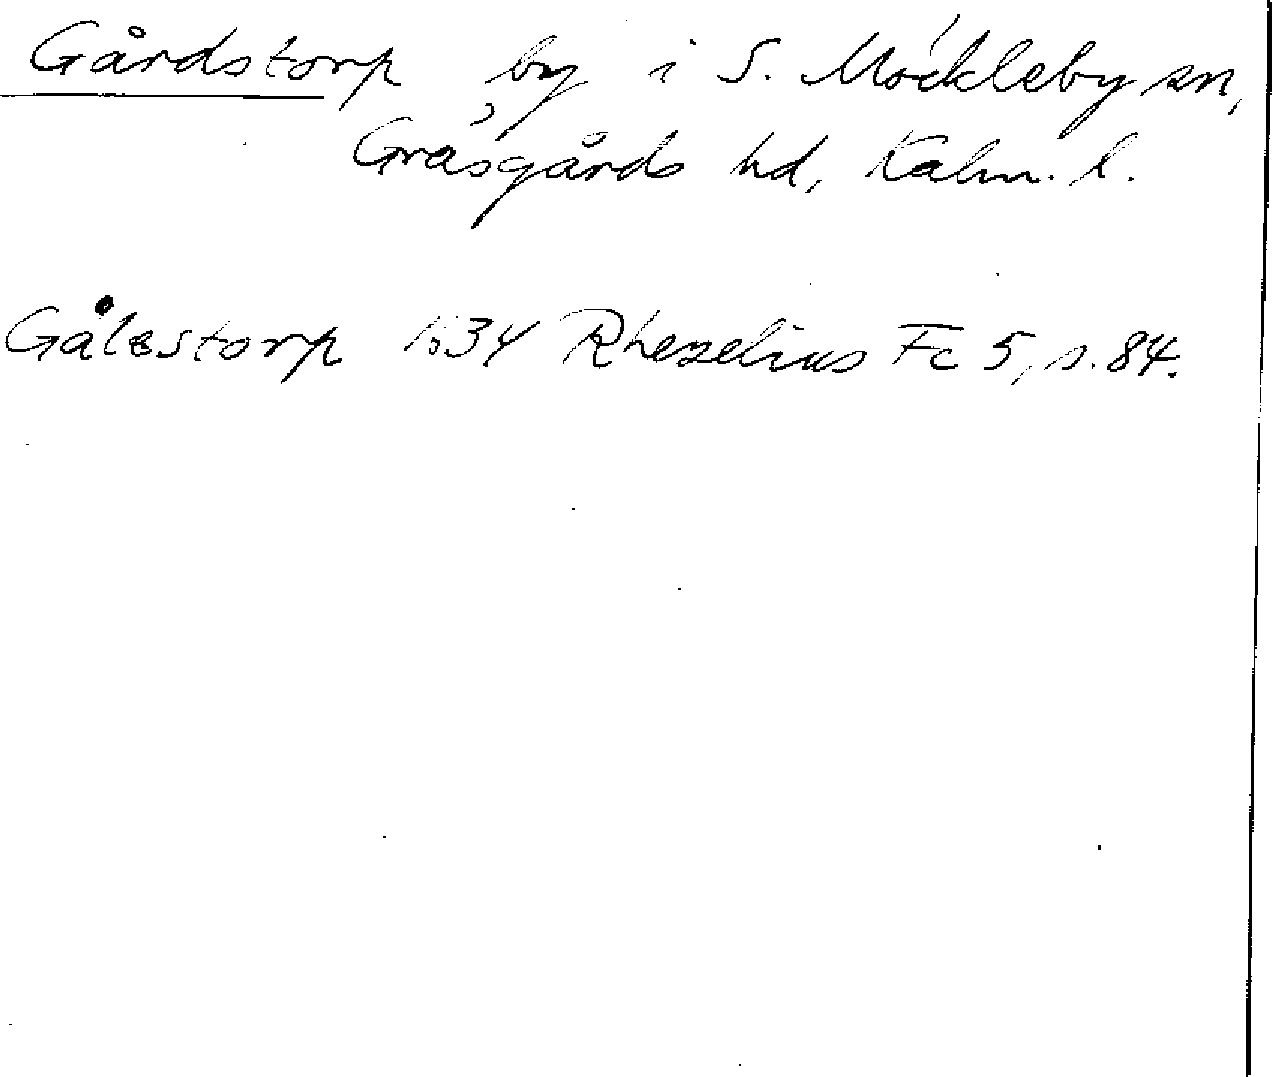 Gårdstorp by i S. Möckleby sn,
Gräsgårds hd, Kalm. l.
Gålestorp 1634 Rhezelius Fc 5, s. 84.